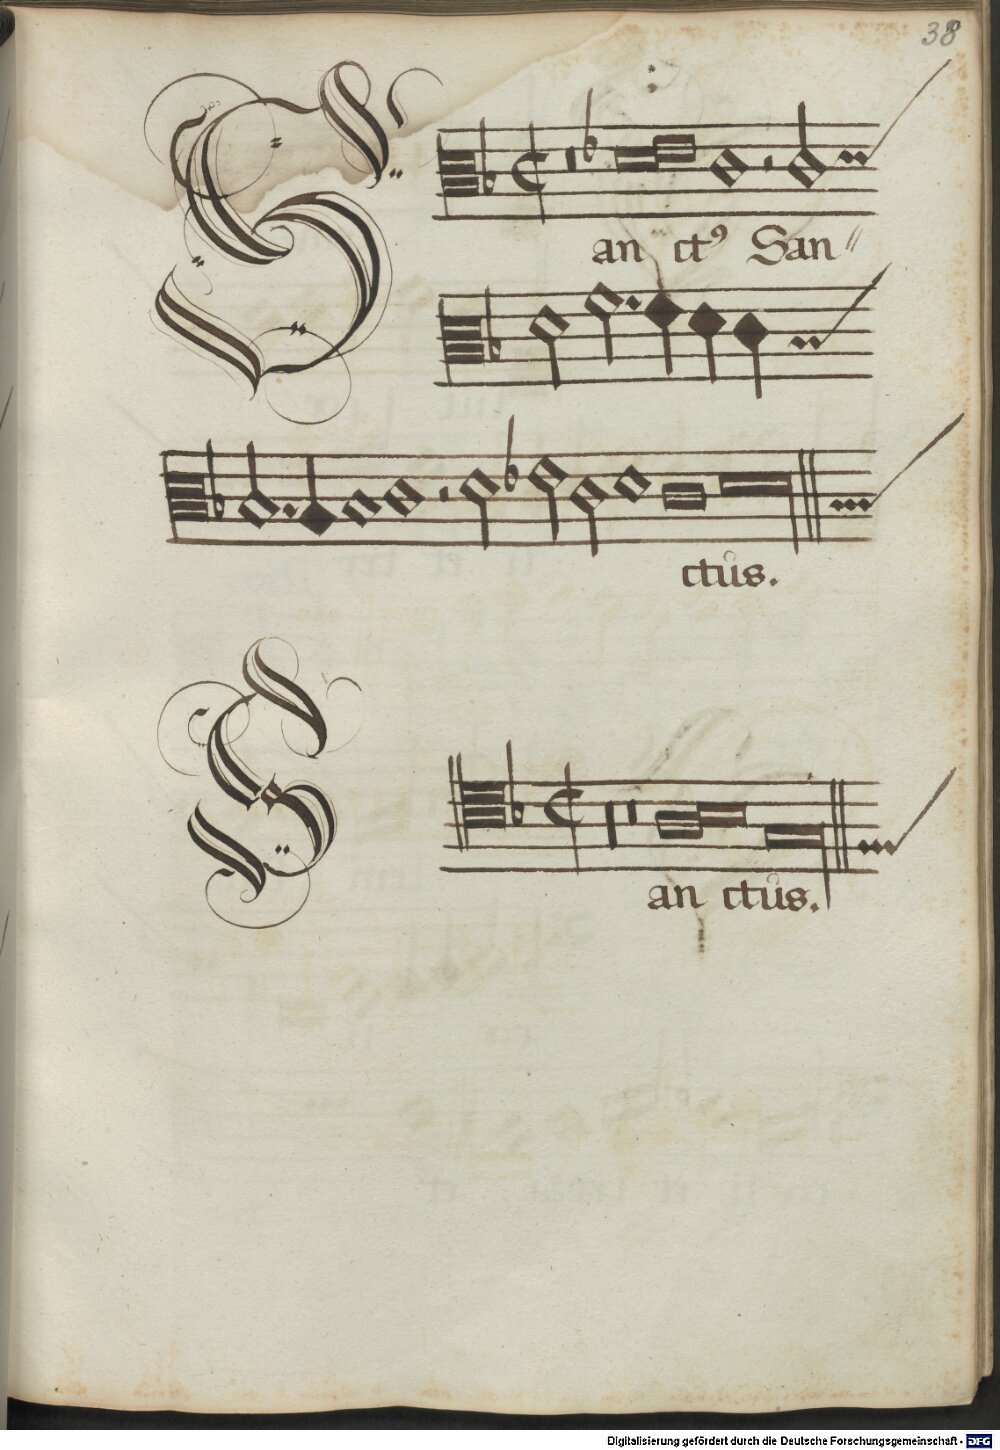 38
S
an ctꝰ San〃
ctůs.
S
an ctůs.
Digitalisierung gefördert durch die Deutsche Forschungsgemeinschaft - DFG